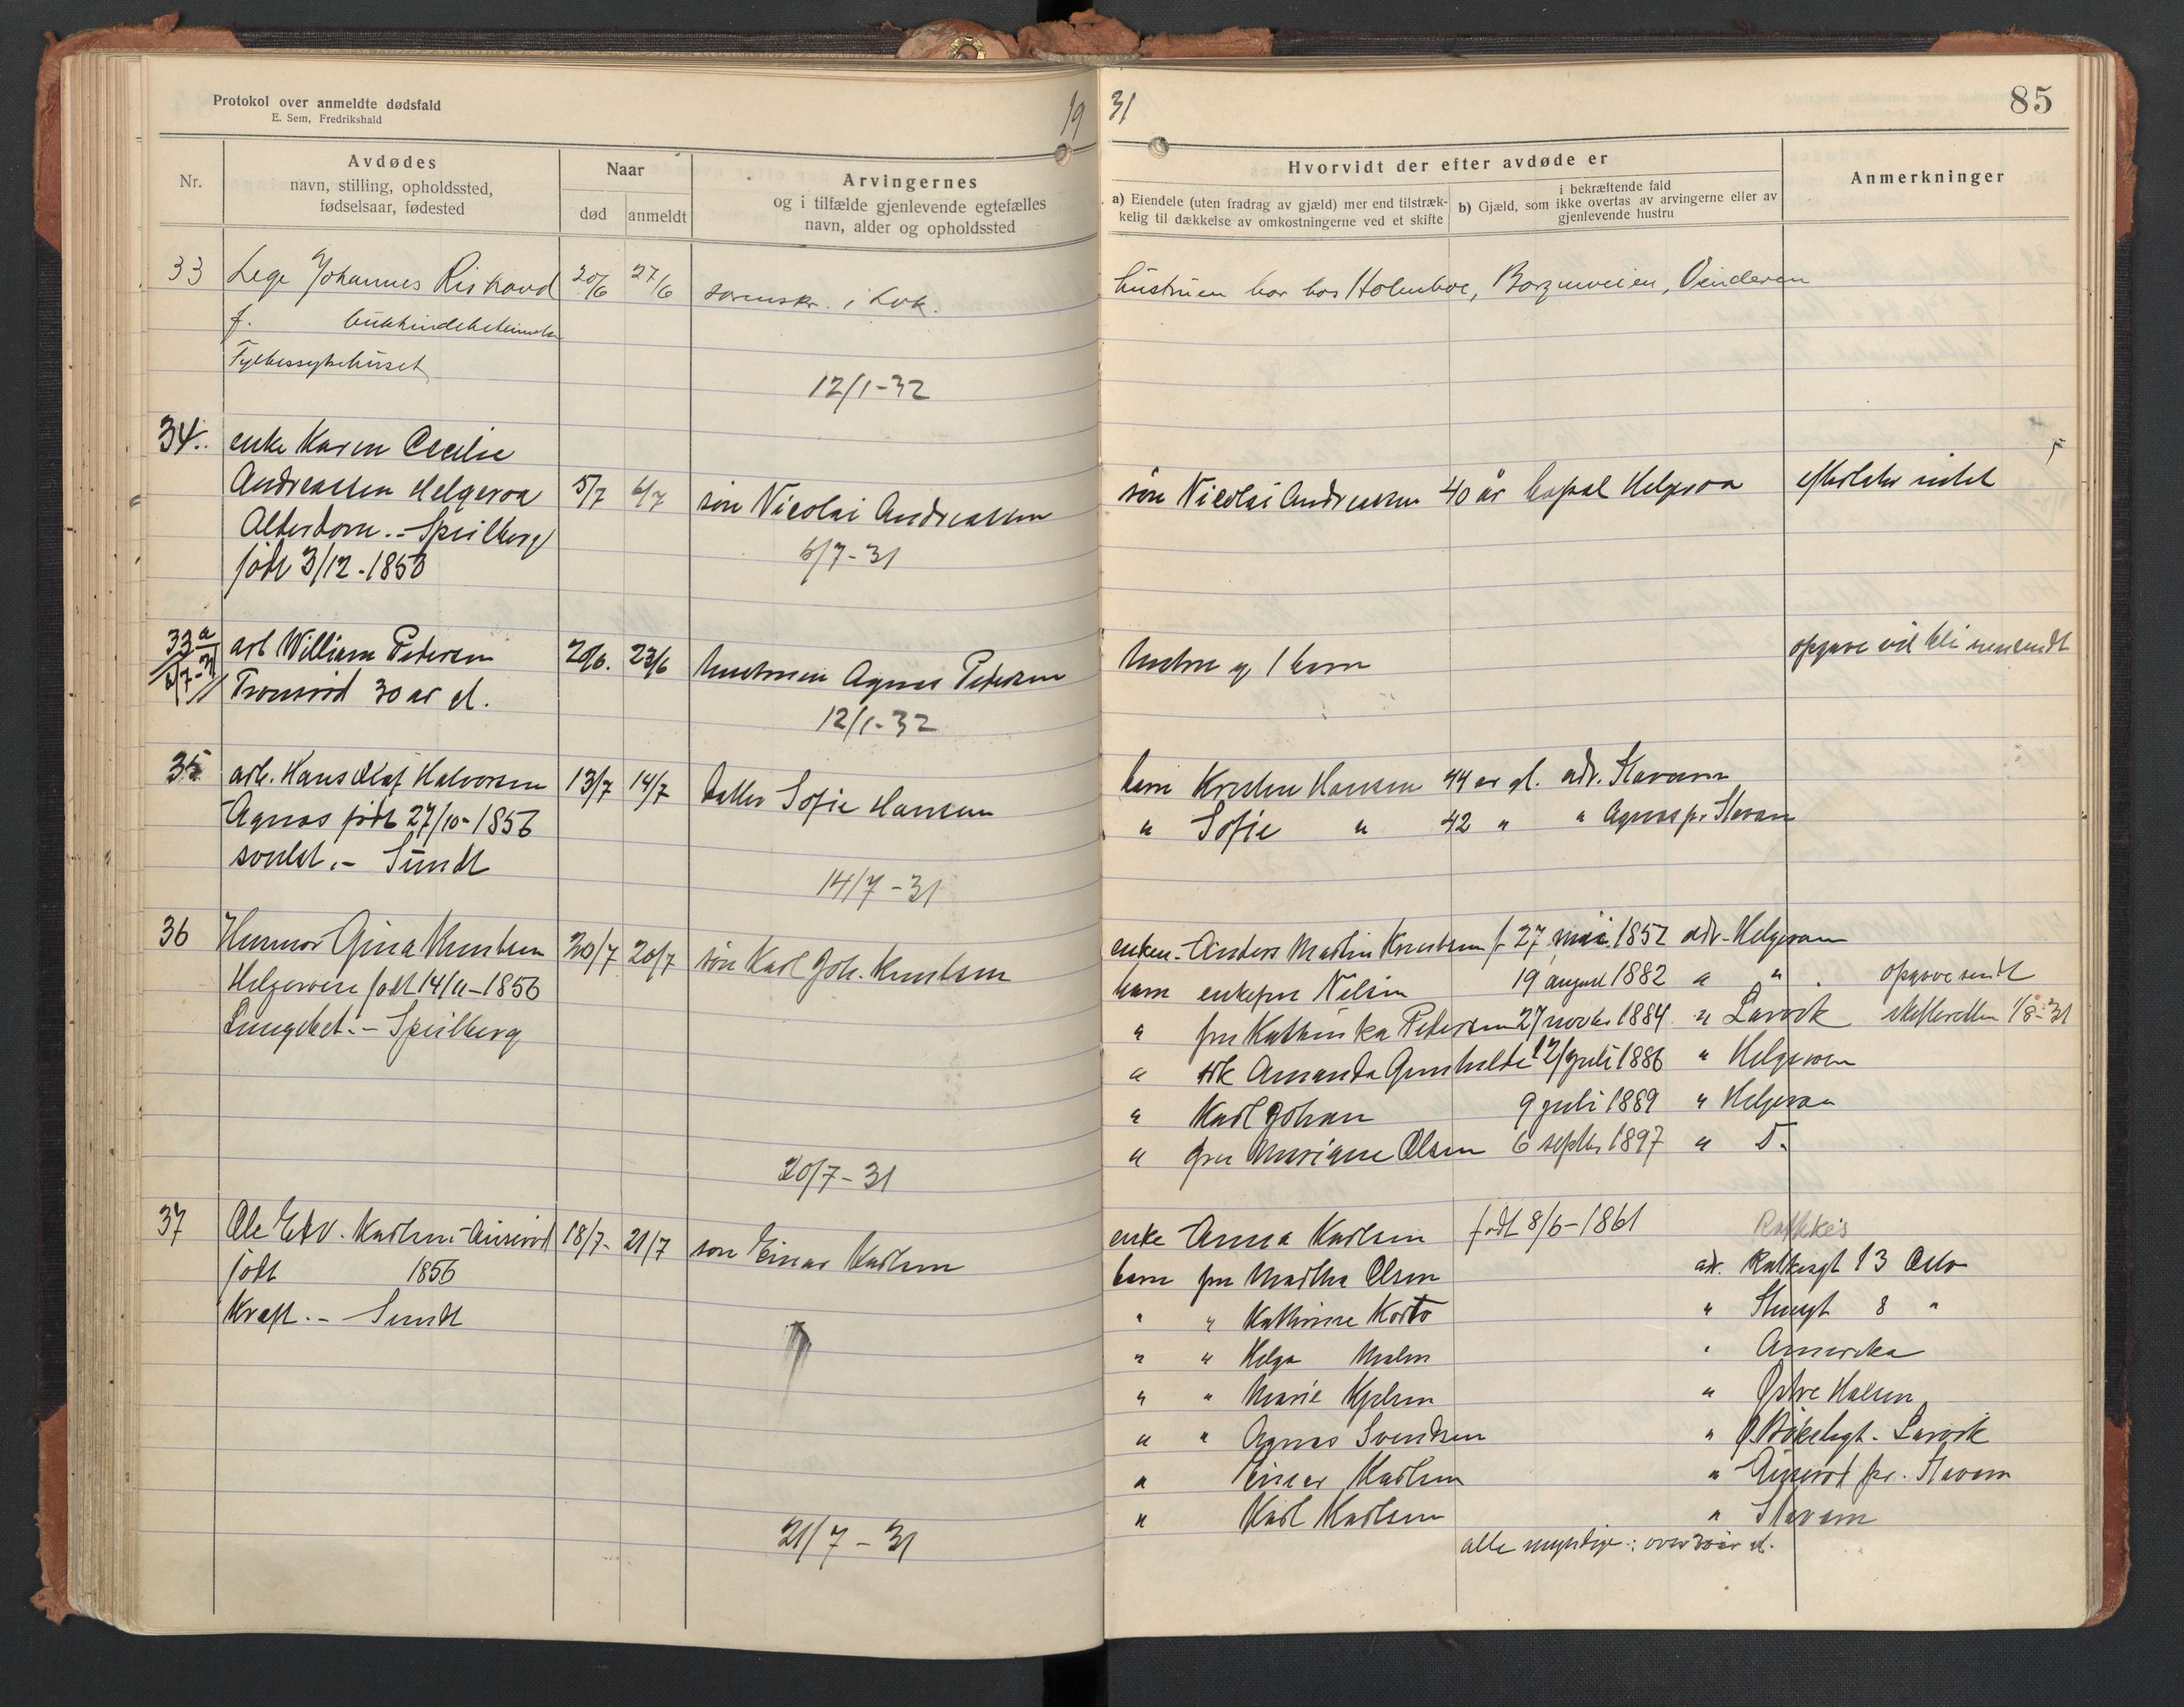 Protokol over anmeldte dødsfald
E. Sem, Fredrikshald
19
31
85
Nr.
Avdødes
navn, stilling, opholdssted,
fødselsaar, fødested
Naar
død
anmeldt
Arvingernes
og i tilfælde gjenlevende egtefælles
navn, alder og opholdssted
Hvorvidt der efter avdøde er
a) Eiendele (uten fradrag av gjæld) mer end tilstræk-
kelig til dækkelse av omkostningerne ved et skifte
i bekræftende fald
b) Gjæld, som ikke overtas av arvingerne eller av
gjenlevende hustru
Anmerkninger
33 Lege Johannes 20/6 27/6 sorenskr. i Lvk. hustruen bor hos Holmboe, Borgenveien, Vinderen
f.
Fylkessykehuset
12/1-32
34. enke Karen Cecilie
Andreassen Helgeroa 5/7 6/7 søn Nicolai Andreassen søn Nicolai Andreassen 40 år Helgeroa efterlater intet
Alderdom.- Speilberg
født 3/12-1850
6/7-31
33a arb William Pedersen 20/6. 23/6 hustruen Agnes Pedersen hustru og 1 barn opgave vil bli innsendt
6/7-31 30 år gl.
12/1-32
35 arb. Hans Olaf Halvorsen 13/7 14/7 datter Sofie Hansen barn Kristen Hansen 44 år gl. adr. Stavern
Agnes født 27/10-1856 " Sofie " 42 " " Agnes pr. Stavern
- Sundt
14/7-31
36 Husmor Gina Knutsen 20/7 20/7 søn Karl Joh. Knutsen Anders Martin Knutsen f. 27 mai 1852 adr. Helgeroen
Helgeroen født 14/11-1856 barn enkefru Nilsen 19 august 1882 " " . opgave sendt
- Speilberg " fru Kathinka Pedersen 27 novbr 1884 " Larvik skifteretten 1/8-31
" Amanda Gunhilde 12/juli 1886 " Helgeroen
" Karl Johan 9 juli 1889 " Helgeroa
" fru Mariane Olsen 6 septbr 1897 " D.
20/7-31
37 Ole Edv. Karlsen 18/7- 21/7 søn Einar Karlsen enke Anna Karlsen født 8/6-1861
Rathkes
født 1856 barn fru Martha Olsen adr. Rathkesgt 13 Oslo
Kræft.- Sundt " " Kathrine Korto " 8 "
" " Helga " Amerika
" " Marie " Østre Halsen
" " Agnes Svendsen " Bøkeligt. Larvik
" Einar Karlsen " pr. Stavern
" Karl Karlsen " Stavern
21/7-31
alle myndige: over 30 år gl.